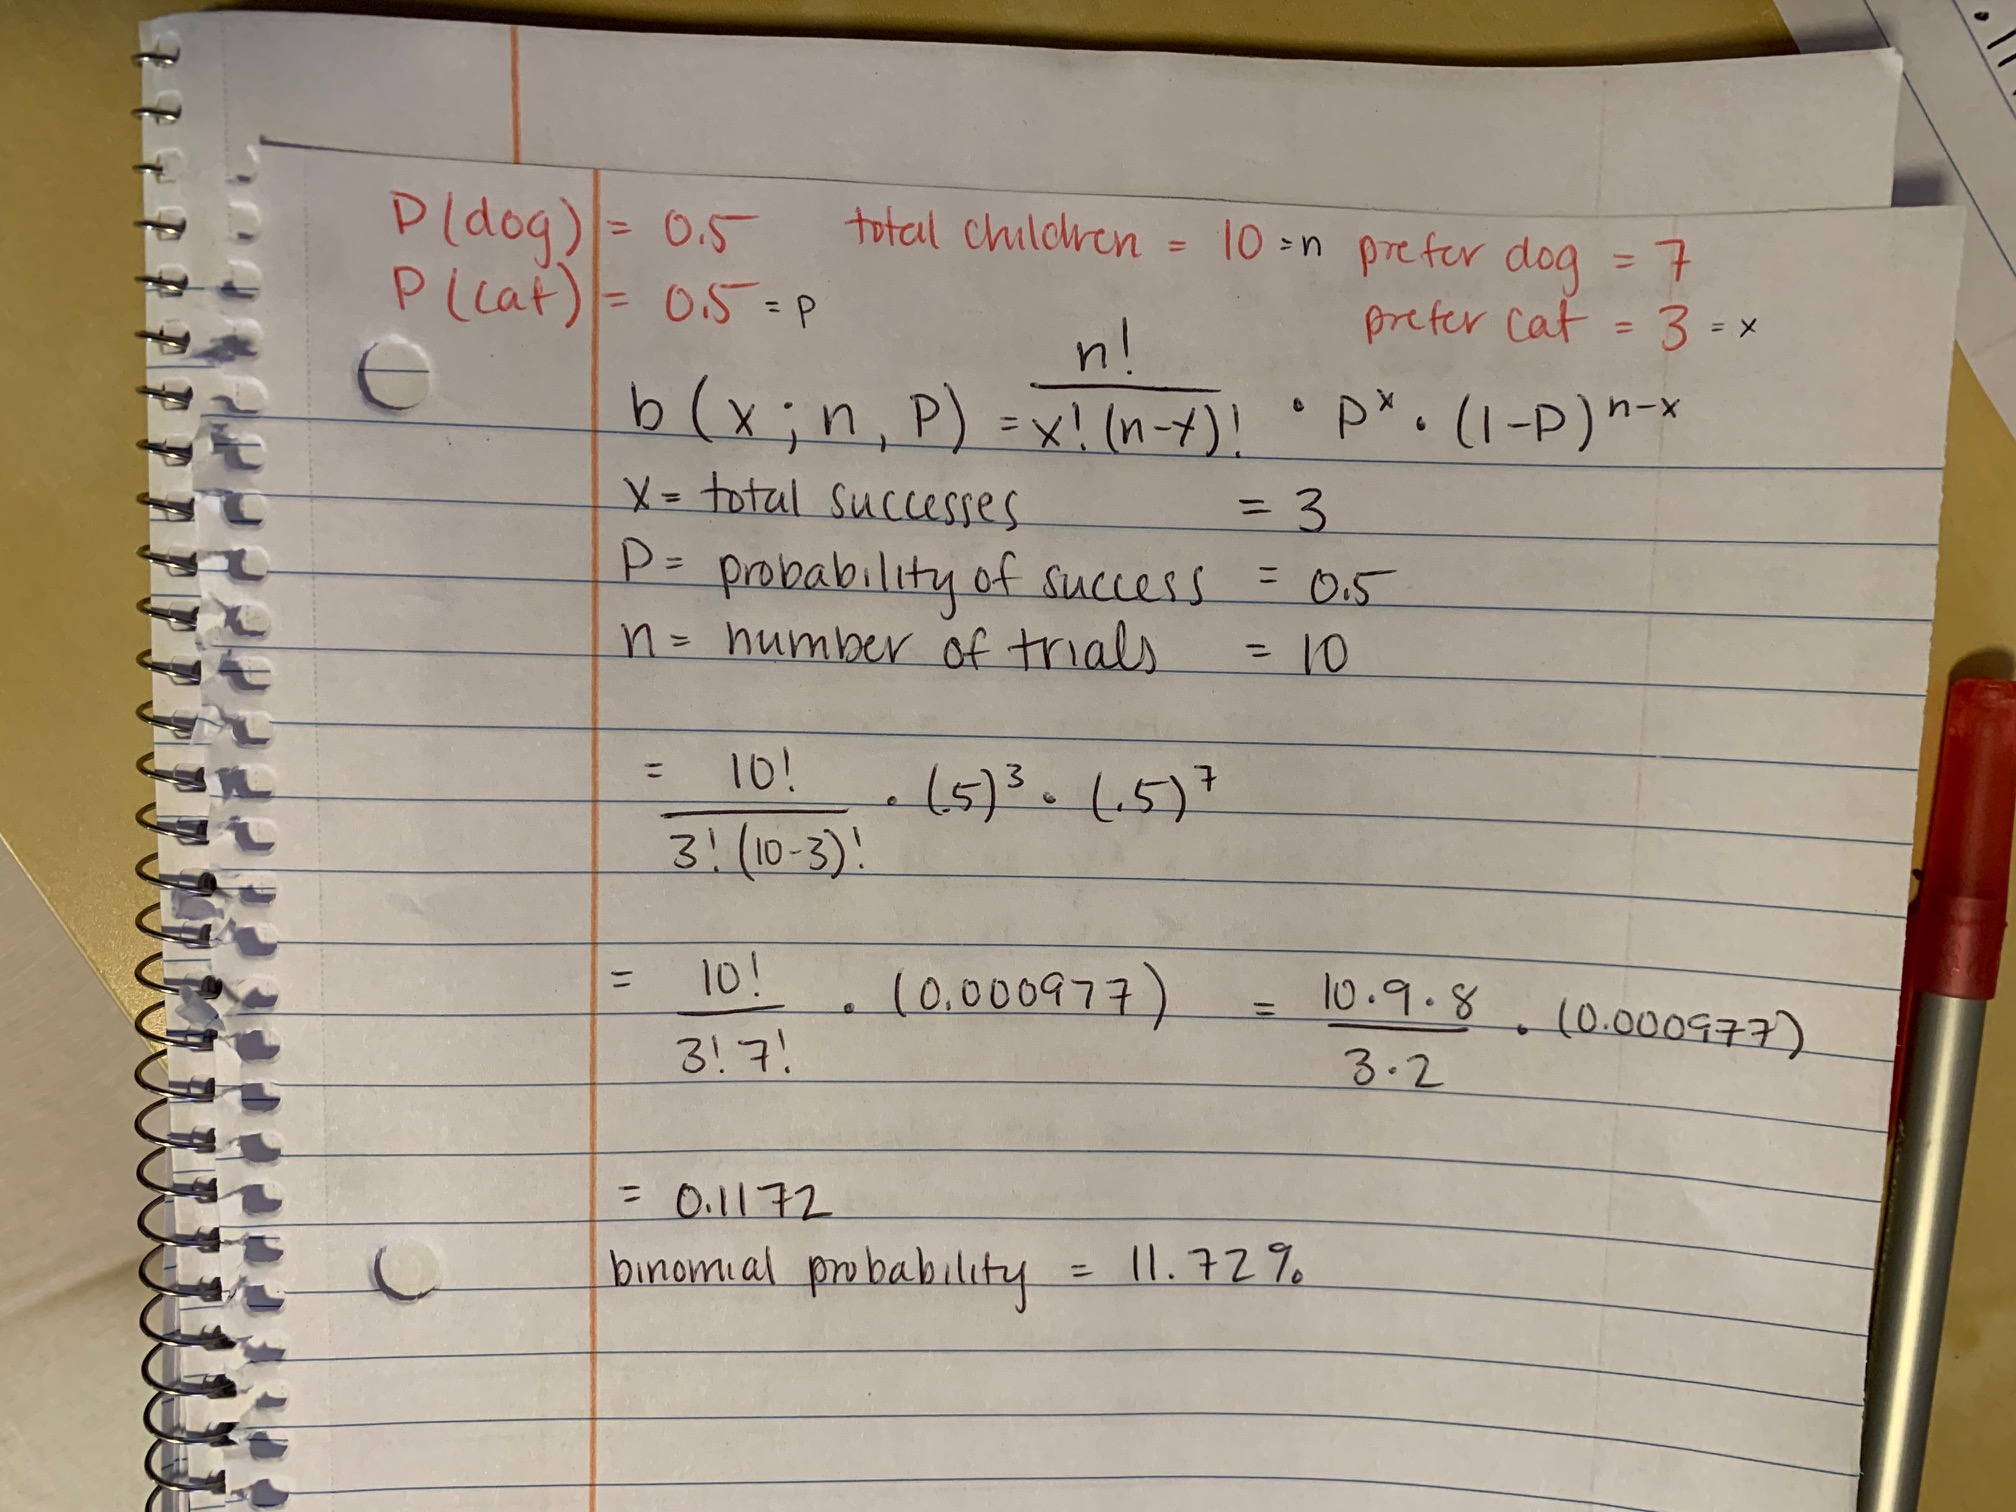 P(dog) = 0.5 total children = 10 = n prefer dog = 7
P(cat) = 0.5 = p prefer cat = 3 = x
b(x; n, P) = n! / x!(n-x)! · P^x · (1-P)^n-x
x = total successes = 3
P = probability of success = 0.5
n = number of trials = 10
= 10! / 3!(10-3)! · (.5)^3 · (.5)^7
= 10! / 3!7! · (0.000977) = 10·9·8 / 3·2 · (0.000977)
= 0.1172
binomial probability = 11.72%